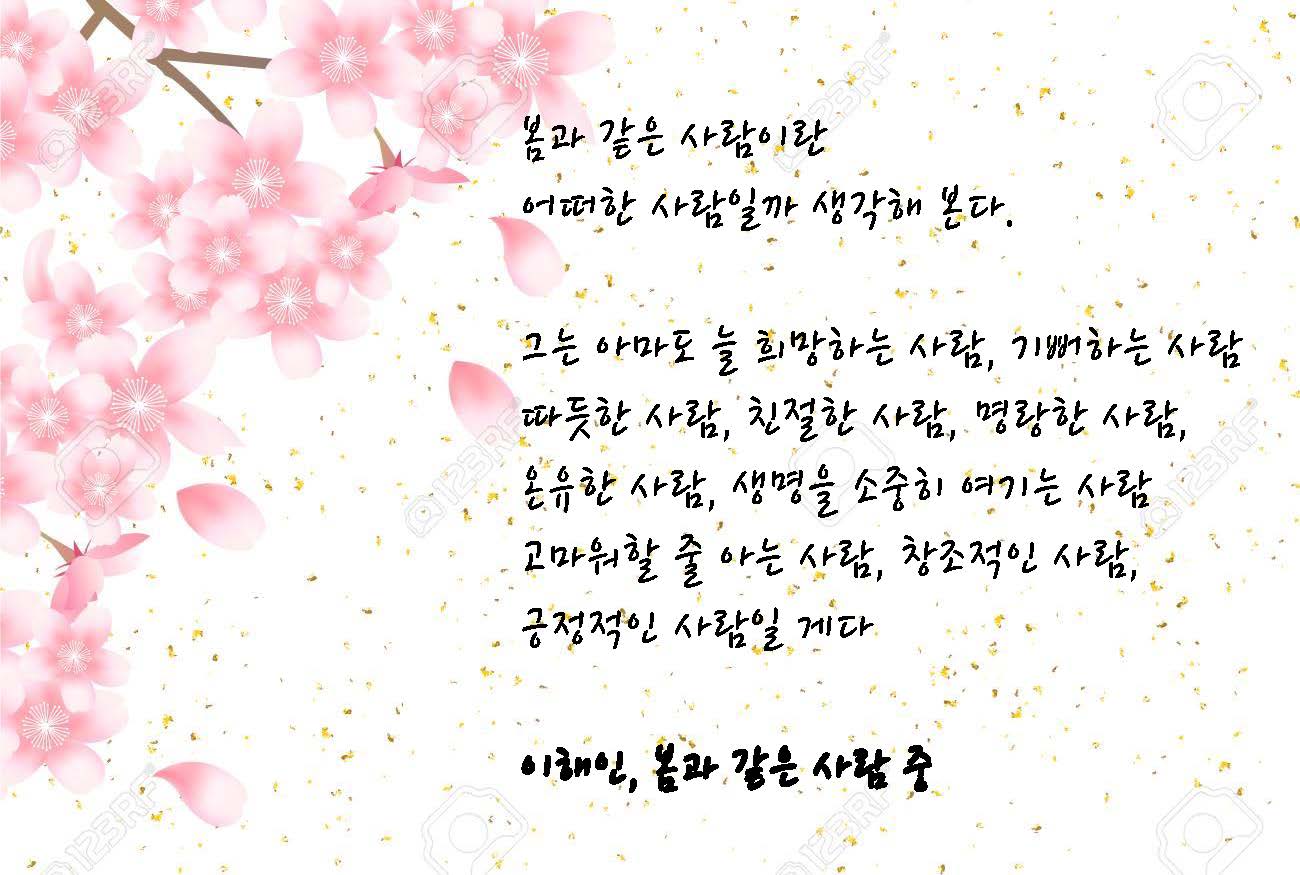 봄과 같은 사람이란
어떠한 사람일까 생각해 본다.
그는 아마도 늘 희망하는 사람, 기뻐하는 사람
따듯한 사람, 친절한 사람, 명랑한 사람,
온유한 사람, 생명을 소중히 여기는 사람
고마워할 줄 아는 사람, 창조적인 사람,
긍정적인 사람일 게다
이해인, 봄과 같은 사람 중